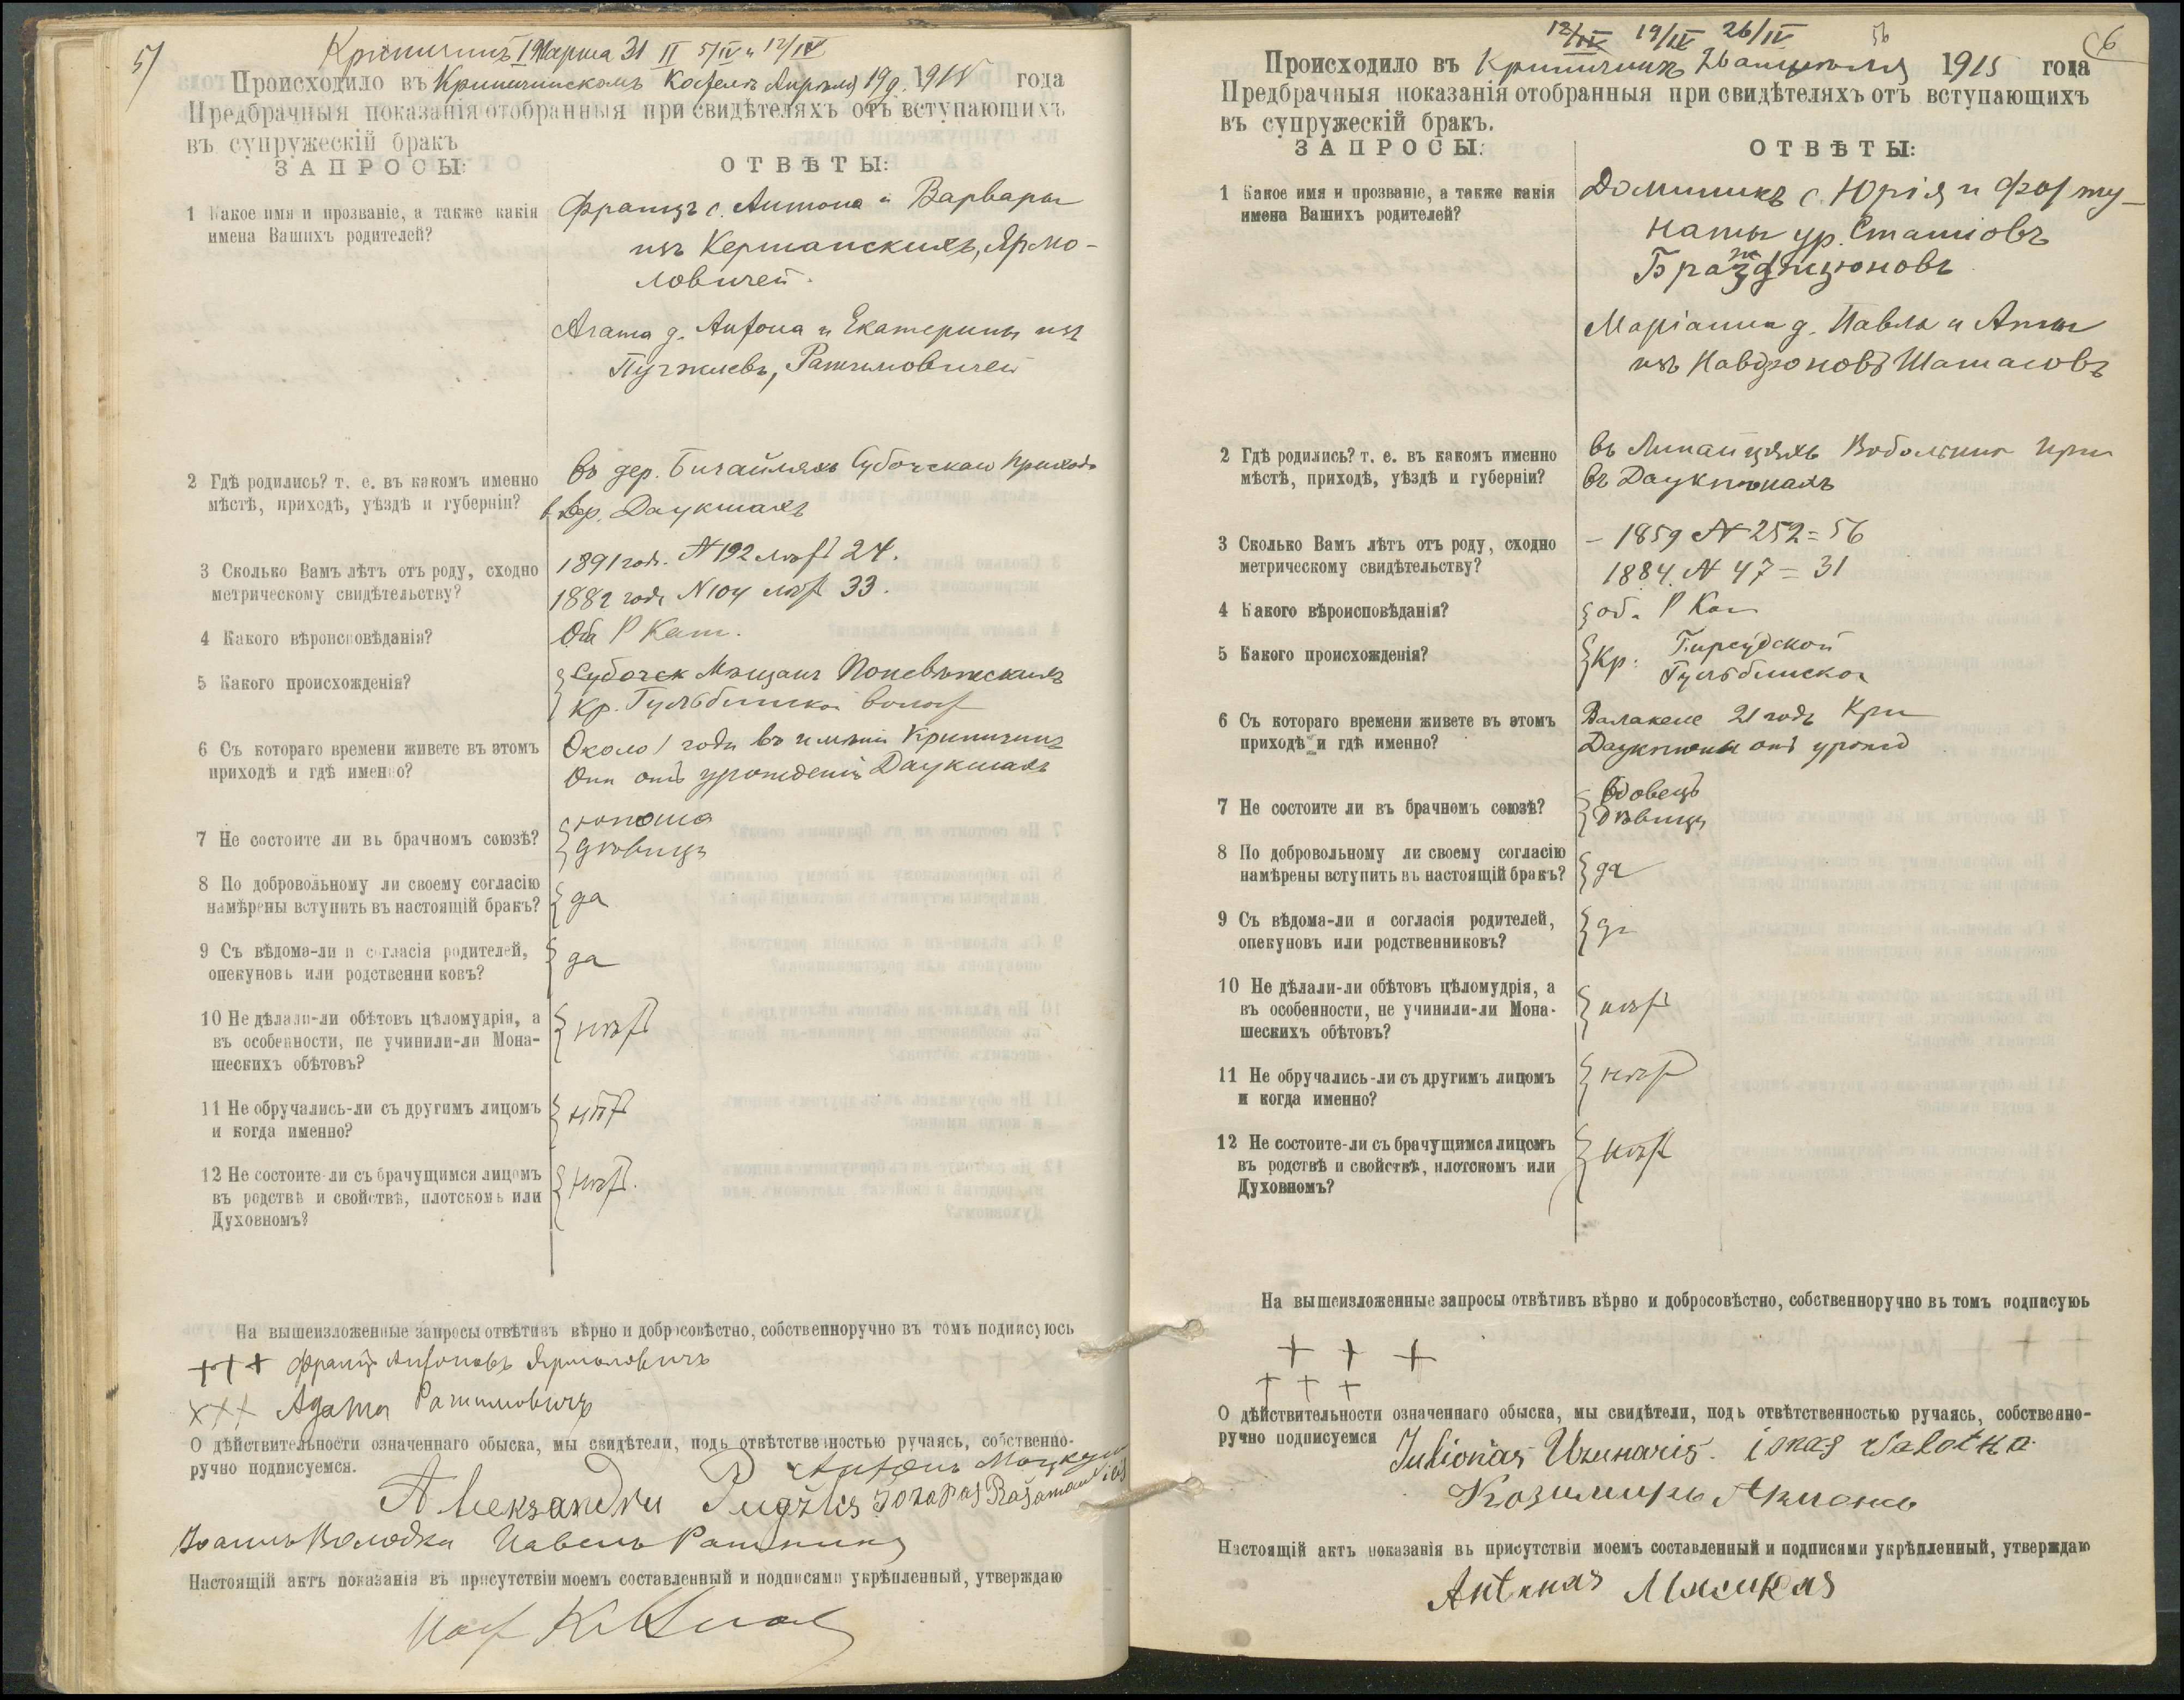 51
Марта 31 II 5/IV и 12/IV
Происходило въ Криничинскомъ Костелѣ Апрѣля 19 д. 1915 года
Предбрачныя показанія отобранныя при свидѣтеляхъ отъ вступающихъ
въ супружескій бракъ
ЗАПРОСЫ: ОТВѢТЫ:
1 Какое имя и прозваніе, а также какія
имена Вашихъ родителей?
Францъ с. Антона и Варвары
изъ Кершанскихъ, Ярмо-
ловичей.
Агата д. Антона и Екатерины изъ
Пугжлевъ, Ратимовичей
2 Гдѣ родились? т. е. въ какомъ именно
мѣстѣ, приходѣ, уѣздѣ и губерніи?
въ дер. Бичайляхъ Субочскаго прихода
в дер. Даукшахъ
3 Сколько Вамъ лѣтъ отъ роду, сходно
метрическому свидѣтельству?
1891 год. N 192 лѣт 24.
1882 годъ N 104 лѣт 33.
4 Какого вѣроисповѣданія?
Оба Р Кат.
5 Какого происхожденія?
Субочск Мѣщанъ Поневѣжскихъ
Кр. Гульбинской волост
6 Съ котораго времени живете въ этомъ
приходѣ и гдѣ именно?
Около 1 года въ имѣніи Криничинъ
Она отъ урожденія Даукшахъ
7 Не состоите ли въ брачномъ союзѣ?
юноша
дѣвица
8 По добровольному ли своему согласію
намѣрены вступить въ настоящій бракъ?
да
9 Съ вѣдома-ли и согласія родителей,
опекуновъ или родственни ковъ?
да
10 Не дѣлали-ли обѣтовъ цѣломудрія, а
въ особенности, не учинили-ли Мона-
шескихъ обѣтовъ?
нѣтъ
11 Не обручались-ли съ другимъ лицомъ
и когда именно?
нѣтъ
12 Не состоите-ли съ брачущимся лицомъ
въ родствѣ и свойствѣ, плотскомъ или
Духовномъ?
нѣтъ.
На вышеизложенные запросы отвѣтивъ вѣрно и добросовѣстно, собственноручно въ томъ подписуюсь
+++ Францъ Антоновъ Ярмоловичъ
××× Агата Ратимовичъ
О дѣйствительности означеннаго обыска, мы свидѣтели, подъ отвѣтственностью ручаясь, собственно-
ручно подписуемся.
Антонъ
Aleksandru Pugžlis Jozapas
Іоаннъ Володка Павелъ
Настоящій актъ показанія въ присутствіи моемъ составленный и подписями укрѣпленный, утверждаю
6
12/IV 19/IV 26/IV 56
Происходило въ 1915 года
Предбрачныя показанія отобранныя при свидѣтеляхъ отъ вступающихъ
въ супружескій бракъ.
ЗАПРОСЫ: ОТВѢТЫ:
1 Какое имя и прозваніе, а также какія
имена Вашихъ родителей?
Доминикъ с. Юрія и Форту-
наты ур. Статіовъ
Маріанна д. Павла и Анны
изъ Навдзюновъ Шатасовъ
2 Гдѣ родились? т. е. въ какомъ именно
мѣстѣ, приходѣ, уѣздѣ и губерніи?
въ
въ
3 Сколько Вамъ лѣтъ отъ роду, сходно
метрическому свидѣтельству?
– 1859 N 252 = 56
1884. N 47 = 31
4 Какого вѣроисповѣданія?
об. Р Кат
5 Какого происхожденія?
Кр: Гирсудской
Гульбинской
6 Съ котораго времени живете въ этомъ
приходѣ и гдѣ именно?
21 годъ
отъ урожд
7 Не состоите ли въ брачномъ союзѣ?
Вдовецъ
Дѣвица
8 По добровольному ли своему согласію
намѣрены вступить въ настоящій бракъ?
да
9 Съ вѣдома-ли и согласія родителей,
опекуновъ или родственниковъ?
да
10 Не дѣлали-ли обѣтовъ цѣломудрія, а
въ особенности, не учинили-ли Мона-
шескихъ обѣтовъ?
нѣтъ
11 Не обручались-ли съ другимъ лицомъ
и когда именно?
нѣтъ
12 Не состоите-ли съ брачущимся лицомъ
въ родствѣ и свойствѣ, плотскомъ или
Духовномъ?
нѣтъ
На вышеизложенные запросы отвѣтивъ вѣрно и добросовѣстно, собственноручно въ томъ подписуюь
+ + +
+ + +
О дѣйствительности означеннаго обыска, мы свидѣтели, подъ отвѣтственностью ручаясь, собственно-
ручно подписуемся
Julionas
Казимиръ
Настоящій актъ показанія въ присутствіи моемъ составленный и подписями укрѣпленный, утверждаю